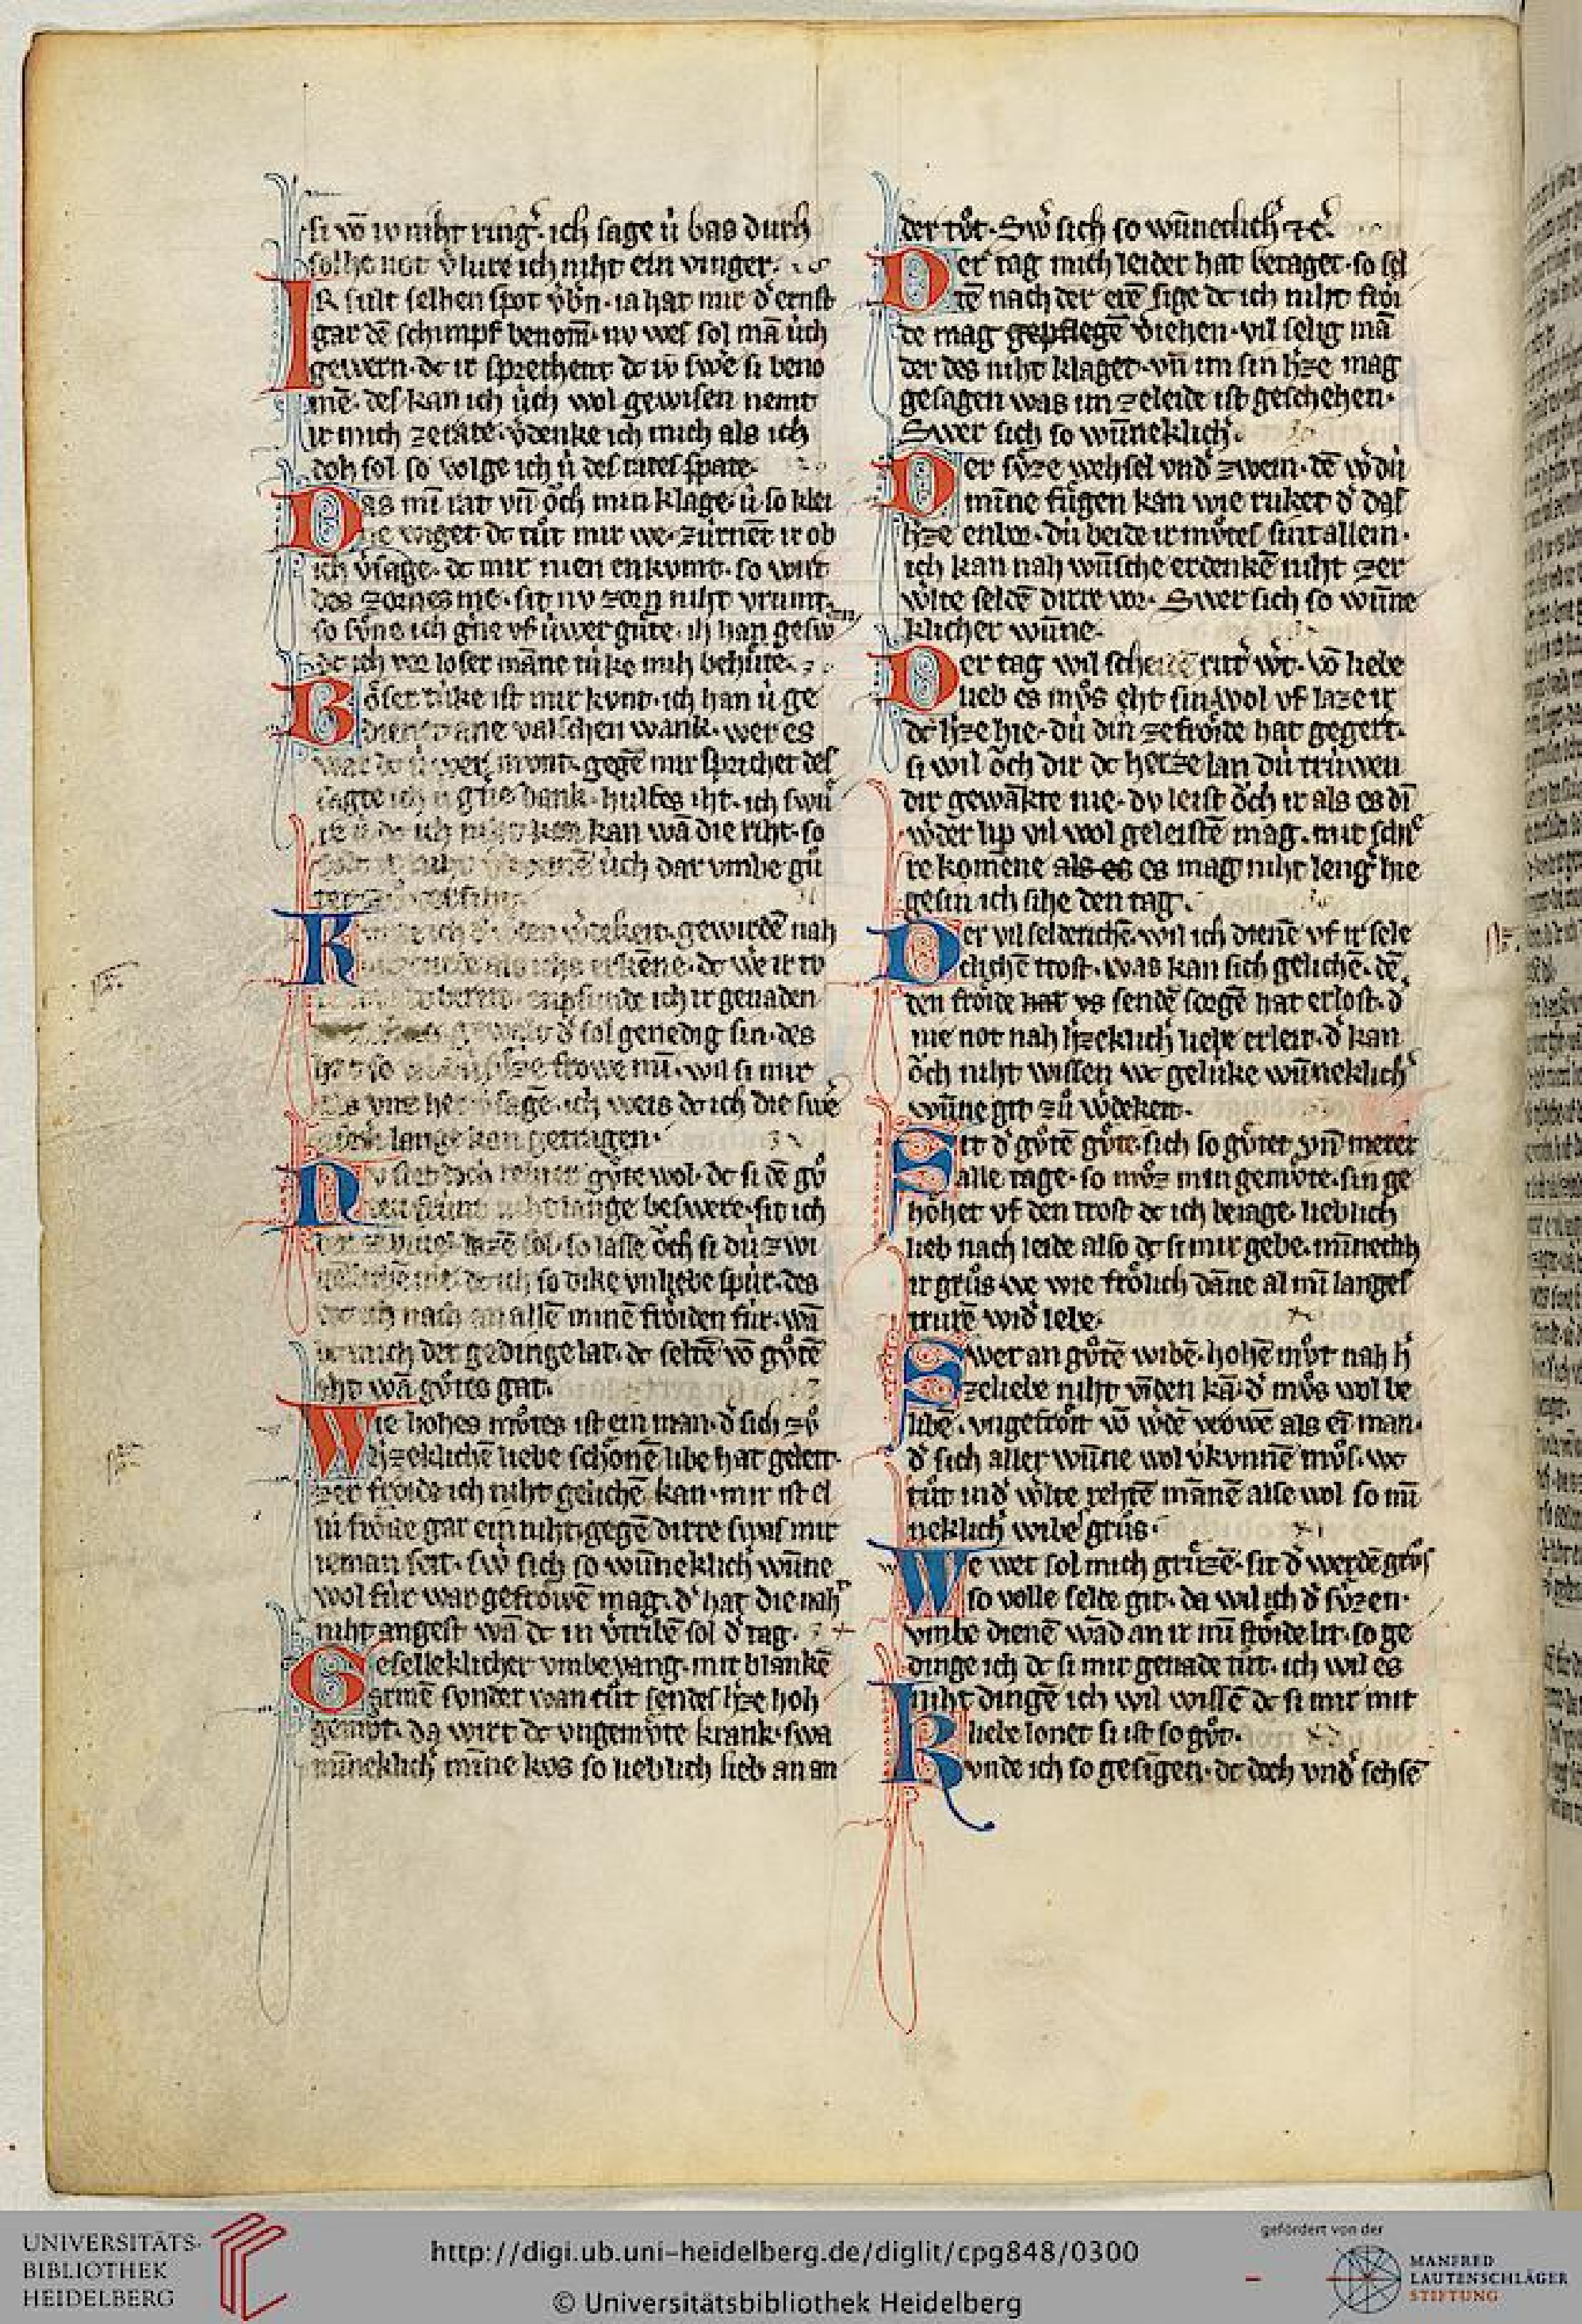 si wē w niht ring᷑. ich sage ù bas durh
solhe not v̾lure ich niht ein vinger.
IR sult selhen spot v̾b̾n. ia hat mir d̾ ernst
gar dē schimpf benom̄. nv wes sol mā ùch
gewern. dc ir sprechent dc w swē si beno
mē. des kan ich ùch wol gewisen nemt
ir mich zerate. v̾denke ich mich als ich
doh sol so volge ich ù des rates spate.
Das mī rat vn̄ ǒch min klage. ù so klei
ne wget dc tůt mir we. zùrnēt ir ob
ich v̾sage. dc mir nien enkvmt. so wirt
des zornes me. sit nv zorn niht vrumt.
so sv̊ne ich g̾ne vf ùwer gùte. ih han gesw
orn
dc ich vor loser māne tùke mih behùte.
Bǒser tùke ist mir kvnt. ich han ù ge
dienet ane valschen wank. wer es
war dc ùwer mvnt. gegē mir sprichet des
sagte ich ù g̾ne dank. hulfes iht. ich swù
kan wā die riht. so
ùch dar vmbe gů
K gewirdē nah
als ichs erkēne. dc we ir tv
enpfunde ich ir genaden
d̾ sol genedig sin. des
hat so h̾ze frowe mī. wil si mir
sagē. ich weis dc ich die swē
lange kan getragen.
Nv stet doch reiner gv̊te wol. dc si dē gů
niht lange beswere. sit ich
sol. so lasse ǒch si dù zwi
dc ich so dike vnliebe spùr. des
ich nach an allē minē frǒiden fùr. wā
mich der gedinge lat. dc seltē vō gůtē
iht wā gůtes gat.
Wie hohes můtes ist ein man. d̾ sich zů
h̾zeklichē liebe schǒnē libe hat geleit.
zer frǒide ich niht gelichē kan. mir ist el
lù frǒide gar ein niht. gegē dirre swas mir
ieman seit. sw̾ sich so wūneklich̾ wūne
wol fùr war gefrǒwē mag. d̾ hat die nah̾
niht angest wā dc in v̾tribē sol d̾ tag.
Geselleklicher vmbevang. mit blankē
armē sunder wan tůt sendes h̾ze hoh
gemůt. da wirt dc vngemůte krank. swa
mīneklich̾ mīne kos so lieblich lieb an an
der tůt. Sw̾ sich so wūneclich̾ ⁊c̾.
Der tag mich leider hat betaget. so sel
tē nach der erē sige dc ich niht frǒi
de mag gepflegē v̾iehen. vil selig mā
der des niht klaget. vn̄ im sin h̾ze mag
gesagen was im zeleide ist geschehen.
Swer sich so wūneklich̾.
Der sv̊ze wehsel vnd̾ zwein. dē w̾dù
mīne fùgen kan wie rùket d̾ das
h̾ze enbor. dù beide ir můtes sint allein.
ich kan nah wūsche erdenkē niht zer
w̾lte seldē dirre vor. Swer sich so wūne
klicher wūne.
Der tag wil scheidē w̾t. vō liebe
lieb es můs eht sin. wol vf laze ir
dc h̾ze hie. dù din zefrǒide hat gegert.
si wil ǒch dir dc herze lan dù trùwen
dir gewākte nie. dv leist ǒch ir als es dī
w̾der lip vil wol geleistē mag. mit schie
re komene als es es mag niht leng̾ hie
gesin ich sihe den tag.
Der vil selderichē. wil ich dienē vf ir sele
clichē trost. was kan sich gelichē. dē
den frǒide hat vs sendē sorgē hat erlost. d̾
nie not nah h̾zeklich̾ liebe erleit. d̾ kan
ǒch niht wissen wc gelùke wūneklich̾
wūne git zů w̾dekeit.
Sit d̾ gůtē gůte. sich so gůtet vn̄ meret
alle tage. so můz min gemůte. sin ge
hǒhet vf den trost dc ich beiage. lieblich
lieb nach leide also dc si mir gebe. mīneclih
ir grůs we wie frǒlich dāne al mī langes
trurē wid̾ lebe.
Swer an gůtē wibē. hohē můt nah h̾
zeliebe niht vīden kā. d̾ můs wol be
libē. vngefrǒit vō w̾dē vrowē als eī man.
d̾ sich aller wūne wol v̾kvnnē můs. wc
tůt ind̾ w̾lte rehtē mānē alse wol so mī
neklich̾ wibe grůs.
We wer sol mich grùzē. sit d̾ werdē grůs
so volle selde git. da wil ich d̾ sv̊zen.
vmbe dienē wād an ir mī frǒide lit. so ge
dinge ich dc si mir genade tůt. ich wil es
niht dingē ich wil wissē dc si mir mit
liebe lonet si ist so gůt.
Kvnde ich so gesīgen. dc doch vnd̾ sehsē
UNIVERSITÄTS-
BIBLIOTHEK
HEIDELBERG
http://digi.ub.uni-heidelberg.de/diglit/cpg848/0300
© Universitätsbibliothek Heidelberg
gefördert von der
MANFRED
LAUTENSCHLÄGER
STIFTUNG